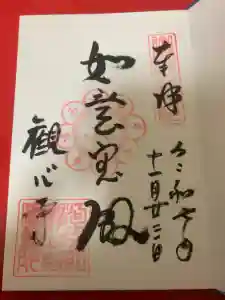 奉拝
令和七年
十一月廿二日
如意宝殿
観心寺